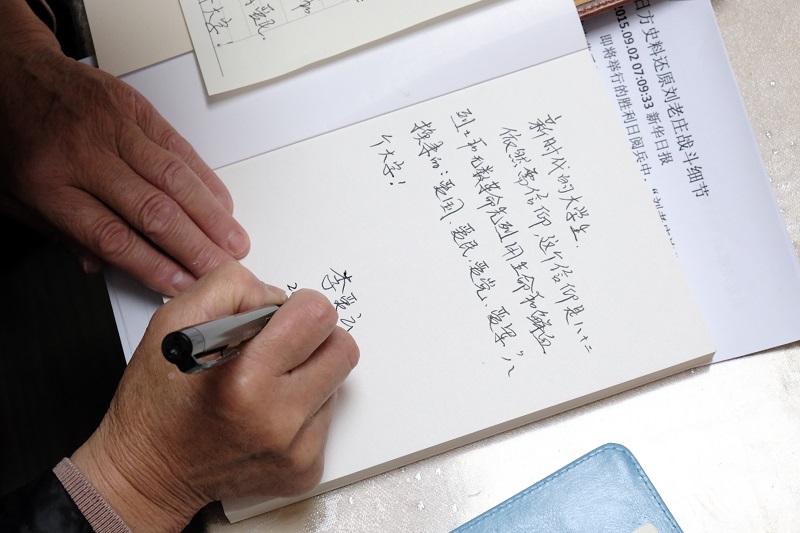 新时代的大学生,
依然需信仰,这个信仰是八十二
烈士和无数革命先烈用生命和鲜血
换来的:爱国、爱民、爱党、爱军”八
个大字!
李爱云
2
日方史料还原刘老庄战斗细节
2015.09.02 07:09:33 新华日报
即将举行的胜利日阅兵中,“刘老庄
爱民
大字!